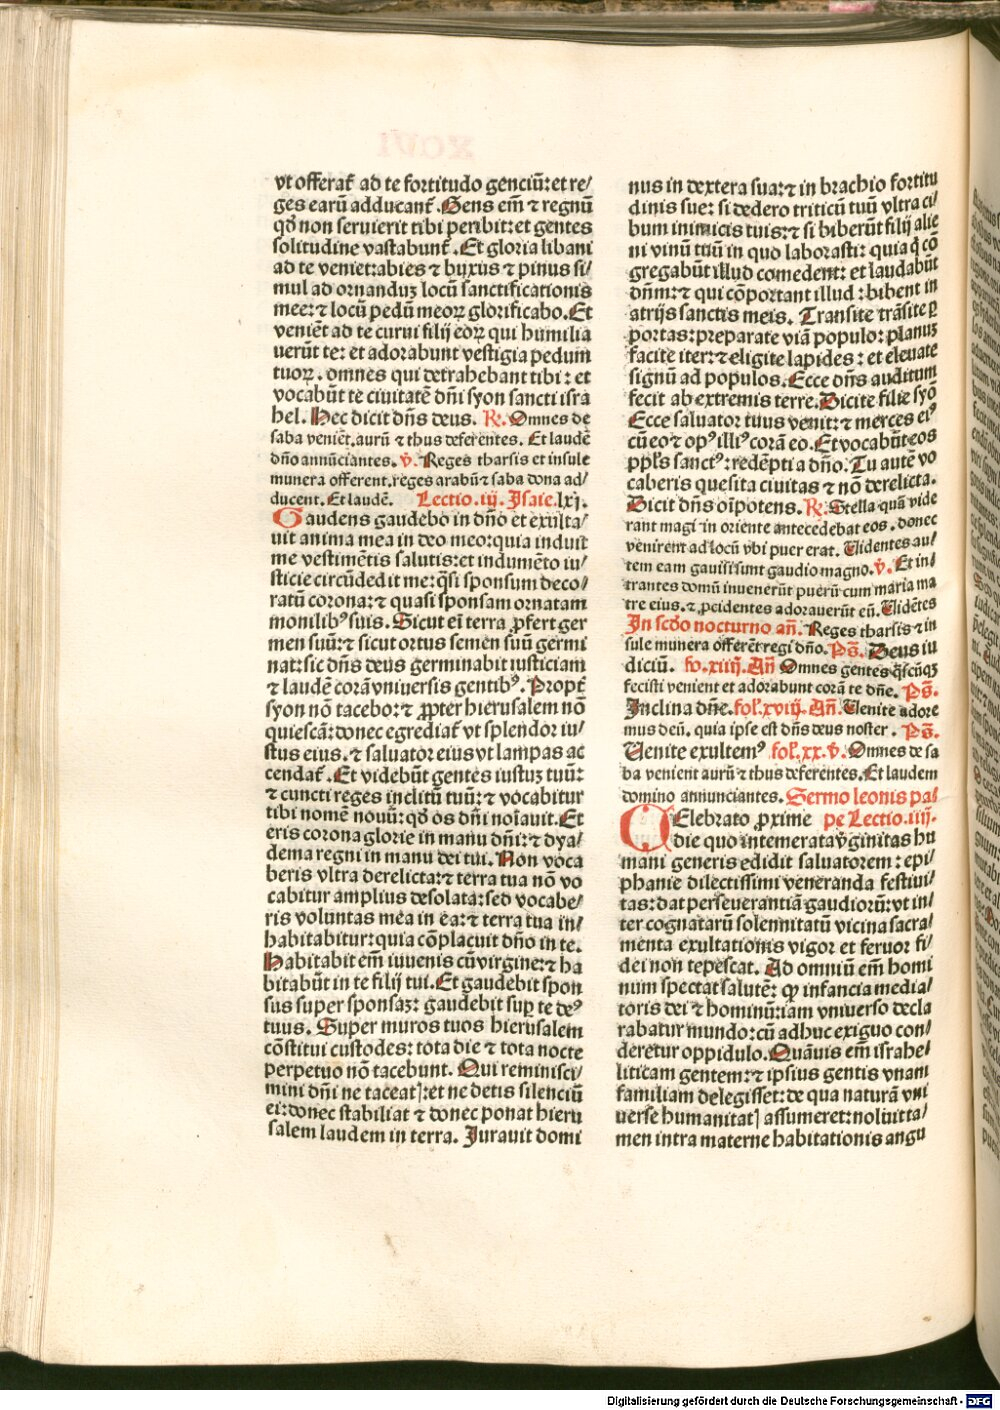 vt offerat̄ ad te fortitudo genciū: et re/
ges earū adducant̄. Gens em̄ ⁊ regnū
qđ non seruierit tibi peribit: et gentes
solitudine vastabunt̄. Et gloria libani
ad te veniet: abies ⁊ buxus ⁊ pinus si/
mul ad ornanduꝫ locū sanctificationis
mee: ⁊ locū pedū meoꝝ glorificabo. Et
veniēt ad te curui filij eoꝝ qui humilia
uerūt te: et adorabunt vestigia pedum
tuoꝝ. omnes qui detrahebant tibi: et
vocabūt te ciuitatē dn̄i syon sancti isra
hel. Hec dicit dn̄s deus. R̄. Omnes de
saba veniēt. aurū ⁊ thus deferentes. Et laudē
dn̄o annūciantes. v̄. Reges tharsis et insule
munera offerent. reges arabū ⁊ saba dona ad/
ducent. Et laudē. Lectio. iij. Isaie. lxj.
Gaudens gaudebo in dn̄o et exulta/
uit anima mea in deo meo: quia induit
me vestimētis salutis: et indumēto iu/
sticie circūdedit me: q̄si sponsum deco/
ratū corona: ⁊ quasi sponsam ornatam
monilibꝰ suis. Sicut ei̅ terra ꝓfert ger
men suū: ⁊ sicut ortus semen suū germi
nat: sic dn̄s deus germinabit iusticiam
⁊ laudē corā vniuersis gentibꝰ. Propt̄
syon nō tacebo: ⁊ ꝓpter hierusalem nō
quiescā: donec egrediat̄ vt splendor iu/
stus eius. ⁊ saluator eius vt lampas ac
cendat̄. Et videbūt gentes iustuꝫ tuū:
⁊ cuncti reges inclitū tuū: ⁊ vocabitur
tibi nomē nouū: qđ os dn̄i noīauit. Et
eris corona glorie in manu dn̄i: ⁊ dya/
dema regni in manu dei tui. Non voca
beris vltra derelicta: ⁊ terra tua nō vo
cabitur amplius desolata: sed vocabe/
ris voluntas mea in ea: ⁊ terra tua in/
habitabitur: quia cōplacuit dn̄o in te.
Habitabit em̄ iuuenis cū virgine: ⁊ ha
bitabūt in te filij tui. Et gaudebit spon
sus super sponsaꝫ: gaudebit sup̱ te deꝰ
tuus. Super muros tuos hierusalem
cōstitui custodes: tota die ⁊ tota nocte
perpetuo nō tacebunt. Qui reminisci/
mini dn̄i ne taceatꝭ: et ne detis silenciū
ei: donec stabiliat ⁊ donec ponat hieru
salem laudem in terra. Jurauit domi
nus in dextera sua: ⁊ in brachio fortitu
dinis sue: si dedero triticū tuū vltra ci/
bum inimicis tuis: ⁊ si biberūt filij alie
ni vinū tuū in quo laborasti: quia q̇ cō
gregabūt illud comedent: et laudabūt
dn̄m: ⁊ qui cōportant illud: bibent in
atrijs sanctis meis. Transite trāsite ꝑ
portas: preparate viā populo: planuꝫ
facite iter: ⁊ eligite lapides: et eleuate
signū ad populos. Ecce dn̄s auditum
fecit ab extremis terre. Dicite filie syō
Ecce saluator tuus venit: ⁊ merces eiꝰ
cū eo ⁊ opꝰ illiꝰ corā eo. Et vocabūt eos
ppl̄s sanctꝰ: redēpti a dn̄o. Tu autē vo
caberis quesita ciuitas ⁊ nō derelicta.
Dicit dn̄s oīpotens. R̄. Stella quā vide
rant magi in oriente antecedebat eos. donec
venirent ad locū vbi puer erat. Uidentes au/
tem eam gauisi sunt gaudio magno. v̄. Et in/
trantes domū inuenerūt puerū cum maria ma
tre eius. ⁊ ꝓcidentes adorauerūt eū. Uidētes
In scđo nocturno an̄. Reges tharsis ⁊ in
sule munera offerēt regi dn̄o. Ps̄. Deus iu
diciū. fo. xiiij. An̄ Omnes gentes q̄scūqꝫ
fecisti venient et adorabunt corā te dn̄e. Ps̄.
Inclina dn̄e. fol. xviij. An̄. Uenite adore
mus deū. quia ipse est dn̄s deus noster. Ps̄.
Uenite exultemꝰ fol. xx. v̄. Omnes de sa
ba venient aurū ⁊ thus deferentes. Et laudem
domino annunciantes. Sermo leonis pa/
CElebrato ꝓxime pe Lectio. iiij.
die quo intemerata v̇ginitas hu
mani generis edidit saluatorem: epi/
phanie dilectissimi veneranda festiui/
tas: dat perseuerantiā gaudiorū: vt in/
ter cognatarū solennitatū vicina sacra/
menta exultationis vigor et feruor fi/
dei non tepescat. Ad omniū em̄ homi
num spectat salutē: ꝙ infancia media/
toris dei ⁊ hominū: iam vniuerso decla
rabatur mundo: cū adhuc exiguo con/
deretur oppidulo. Quāuis em̄ israhe/
liticam gentem: ⁊ ipsius gentis vnam
familiam delegisset: de qua naturā vni
uerse humanitatꝭ assumeret: noluit ta/
men intra materne habitationis angu
Digitalisierung gefördert durch die Deutsche Forschungsgemeinschaft - DFG